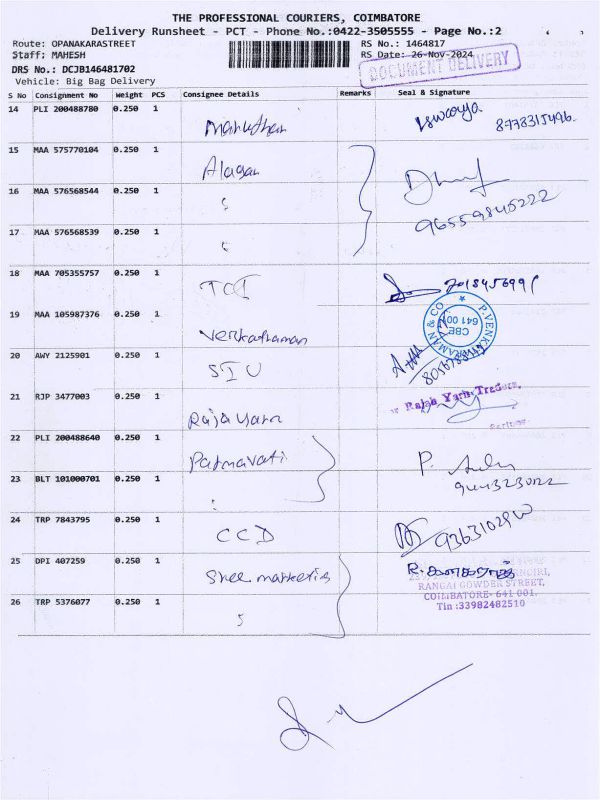 THE PROFESSIONAL COURIERS, COIMBATORE
Delivery Runsheet - PCT - Phone No.:0422-3505555 - Page No.:2
Route: OPANAKARASTREET RS No.: 1464817
Staff: MAHESH RS Date: 26-Nov-2024
DOCUMENT DELIVERY
DRS No.: DCJB146481702
Vehicle: Big Bag Delivery
S No Consignment No Weight PCS Consignee Details Remarks Seal & Signature
14 PLI 200488780 0.250 1
8778315496.
15 MAA 575770104 0.250 1 Alagar
16 MAA 576568544 0.250 1
96559845222
17 MAA 576568539 0.250 1
18 MAA 705355757 0.250 1 TCI
19 MAA 105987376 0.250 1 Venkatraman
P.VENKATRAMAN & CO
CBE
641 001
20 AWY 2125901 0.250 1 SIU
21 RJP 3477003 0.250 1 Raja Yarn
Rajah Yarn Traders,
Partner
22 PLI 200488640 0.250 1 Patmavati
P.
23 BLT 101000701 0.250 1 :
24 TRP 7843795 0.250 1 CCD
25 DPI 407259 0.250 1 Sree marketing
R.
RANGAI GOWDER STREET,
COIMBATORE- 641 001.
Tin :33982482510
26 TRP 5376077 0.250 1